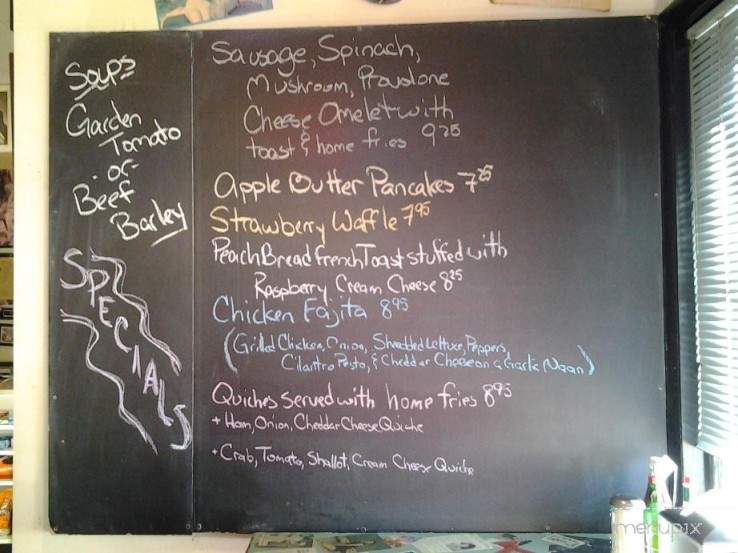 Soups
Garden
Tomato
-or-
Beef
Barley
SPECIALS
Sausage, Spinach,
Mushroom, Provolone
Cheese Omelet with
toast & home fries 9.25
Apple Butter Pancakes 7.25
Strawberry Waffle 7.95
Peach Bread French Toast stuffed with
Raspberry Cream Cheese 8.25
Chicken Fajita 8.95
(Grilled Chicken, Onion, Shredded Lettuce, Peppers,
Cilantro Pesto, & Cheddar Cheese on a Garlic Naan)
Quiches served with home fries 8.95
+ Ham, Onion, Cheddar Cheese Quiche
+ Crab, Tomato, Shallot, Cream Cheese Quiche
menupix